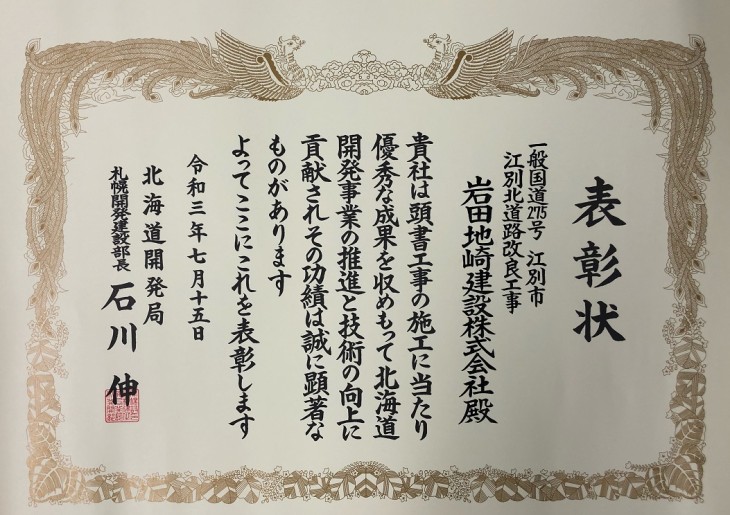 表彰状
一般国道275号 江別市
江別北道路改良工事
岩田地崎建設株式会社殿
貴社は頭書工事の施工に当たり
優秀な成果を収めもって北海道
開発事業の推進と技術の向上に
貢献されその功績は誠に顕著な
ものがあります
よってここにこれを表彰します
令和三年七月十五日
北海道開発局
札幌開発建設部長 石川 伸